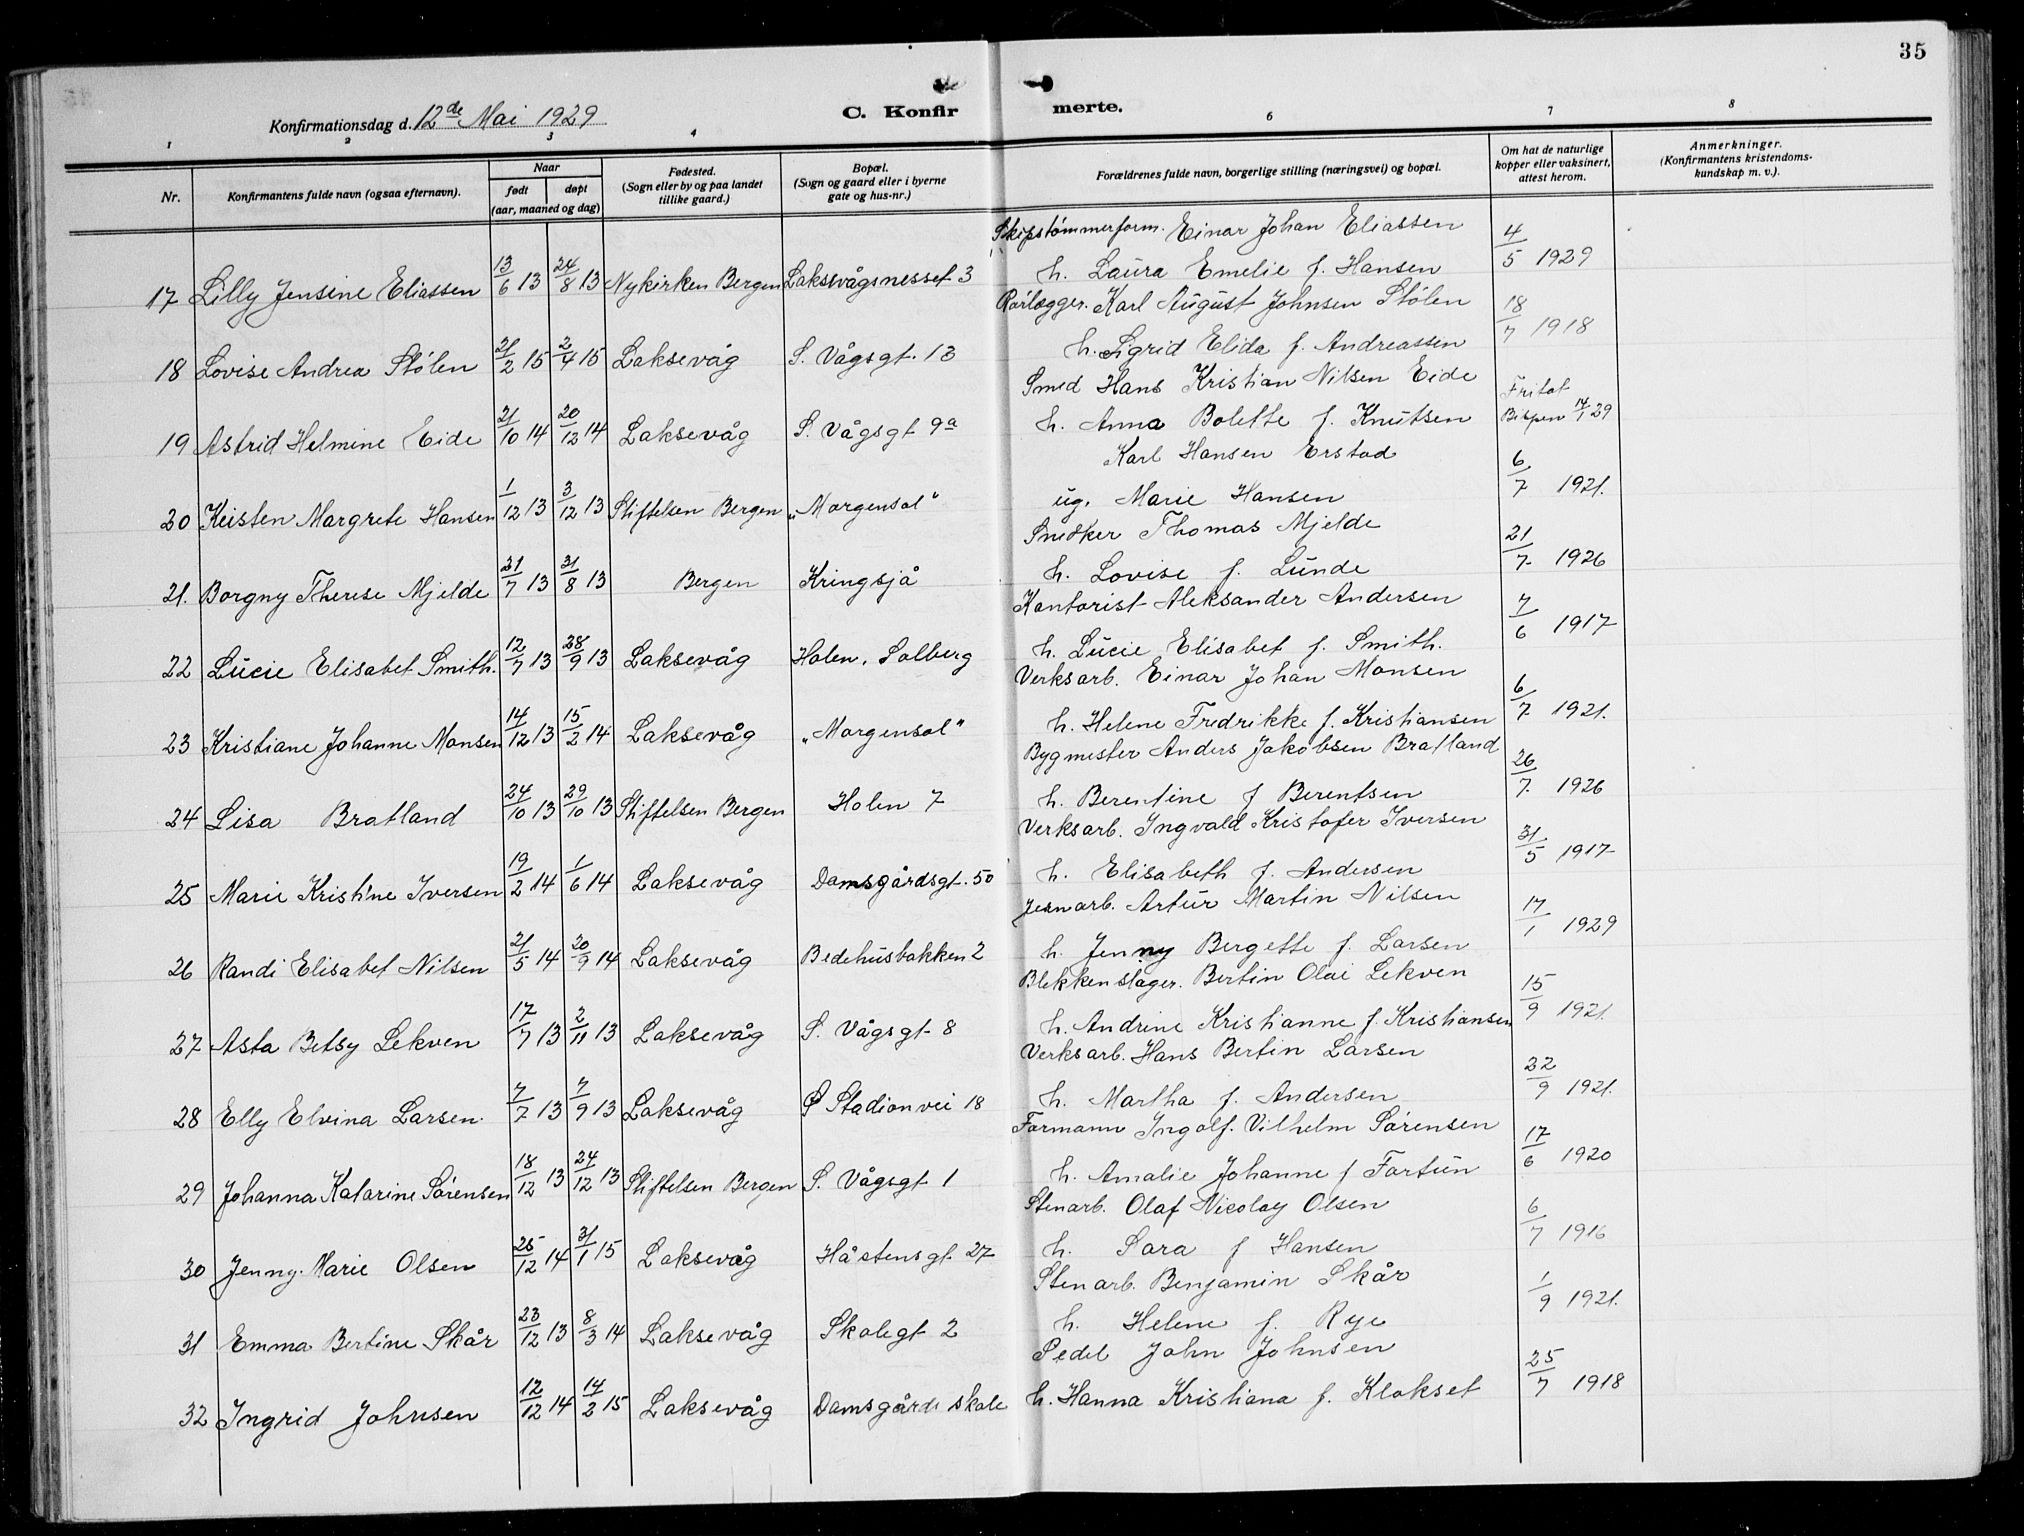 35
Konfirmationsdag d. 12de Mai 1929
C. Konfirmerte.
1 2 3 4 6 7 8
Nr. Konfirmantens fulde navn (ogsaa efternavn). Naar født døpt (aar, maaned og dag) Fødested. (Sogn eller by og paa landet tillike gaard.) Bopæl. (Sogn og gaard eller i byerne gate og hus-nr.) Forældrenes fulde navn, borgerlige stilling (næringsvei) og bopæl. Om hat de naturlige kopper eller vaksinert, attest herom. Anmerkninger. (Konfirmantens kristendomskundskap m. v.).
Skipstømmerform. Einar Johan Eliassen
17 Lilly Jensine Eliassen 13/6 13 24/8 13 Nykirken Bergen Laksevågsnesset 3 h. Laura Emelie f. Hansen 4/5 1929
Rørlægger. Karl August Johnsen Stølen
18 Lovise Andrea Stølen 21/2 15 2/4 15 Laksevåg S. Vågsgt. 13 h. Sigrid Elida f. Andreassen 18/7 1918
Smed Hans Kristian Nilsen Eide
19 Astrid Helmine Eide 21/10 14 20/12 14 Laksevåg S. Vågsgt 9a h. Anna Bolette f. Knutsen Fritat Bispen 14/1 29
Karl Hansen Erstad
20 Kristen Margrete Hansen 1/12 13 3/12 13 Stiftelsen Bergen „Morgensol" ug. Marie Hansen 6/7 1921.
Snedker Thomas Mjelde
21. Borgny Therese Mjelde 21/7 13 31/8 13 Bergen Kringsjå h. Lovise f. Lunde 21/7 1926
Kontorist Aleksander Andersen
22 Lucie Elisabet Smith. 12/7 13 28/9 13 Laksevåg Holen, Solberg h. Lucie Elisabet f. Smith. 7/6 1917
Verksarb. Einar Johan Monsen
23 Kristiane Johanne Monsen 14/12 13 15/2 14 Laksevåg „Morgensol" h. Helene Fredrikke f. Kristiansen 6/7 1921.
Bygmester Anders Jakobsen Bratland
24 Lisa Bratland 24/10 13 29/10 13 Stiftelsen Bergen Holen 7 h. Berentine f Berentsen 26/7 1926
Verksarb. Ingvald Kristofer Iversen
25 Marie Kristine Iversen 19/2 14 1/6 14 Laksevåg Damsgårdsgt. 50 h. Elisabeth f. Andersen 31/5 1917
Jernarb. Artur Martin Nilsen
26 Randi Elisabet Nilsen 21/5 14 20/9 14 Laksevåg Bedehusbakken 2 h. Jenny Bergette f. Larsen 17/1 1929
Blekkenslager. Bertin Olai Lekven
27 Asta Betsy Lekven 17/7 13 2/11 13 Laksevåg S. Vågsgt 8 h. Andrine Kristianne f. Kristiansen 15/9 1921
Verksarb. Hans Bertin Larsen
28 Elly Elvina Larsen 7/7 13 7/9 13 Laksevåg S Stadionvei 18 h. Martha f. Andersen 22/9 1921.
Formann Ingolf. Vilhelm Sørensen
29 Johanna Katarine Sørensen 18/12 13 24/12 13 Stiftelsen Bergen S. Vågsgt 1 h. Amalie Johanne f Fortun 17/6 1920
Stenarb. Olaf Nicolay Olsen
30 Jenny Marie Olsen 25/12 14 31/1 15 Laksevåg Håstensgt. 27 h. Sara f Hansen 6/7 1916
Stenarb. Benjamin Skår
31 Emma Bertine Skår 23/12 13 8/3 14 Laksevåg Skolegt 2 h. Helene f. Rye 1/9 1921.
Pedel John Johnsen
32 Ingrid Johnsen 12/12 14 14/2 15 Laksevåg Damsgårds skole h. Hanna Kristiana f. Klokset 25/7 1918